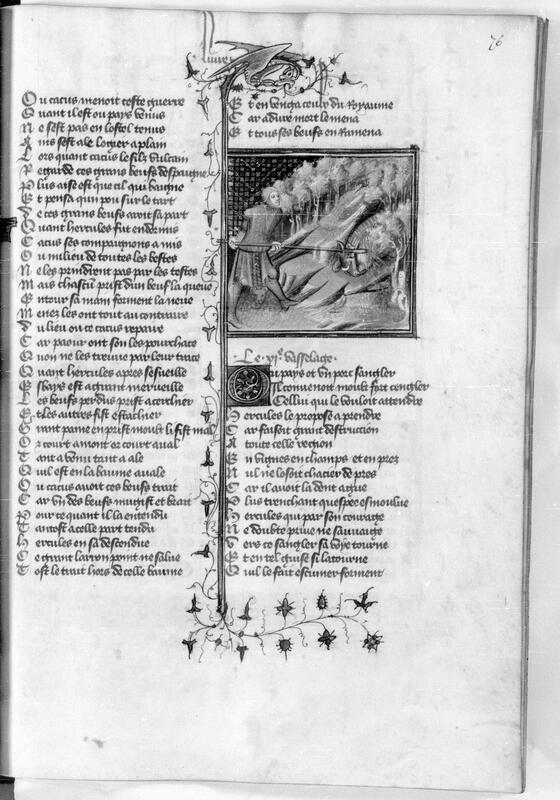 76
Livre
Ou cacus menoit ceste guerre
Quant il est ou pays venus
Ne sest pas en lostol tenus
Ains sest ale logier a plain
Lors quant cacus le filz vulcain
Regarde ces grans beufs despaigne
Plus aise est que cil qui baigne
Et pensa quun pou sur le tart
De ces grans beufs aroit sa part
Quant hercules fut endormis
Cacus ses compaignons a mis
Ou milieu de toutes les bestes
Ne les prindrent pas par les testes
Mais chascun prist dun beuf la queue
Entour sa main forment la neue
Menez les ont tout au contraire
Du lieu ou cacus repaire
Car paour ont son les pourchace
Quon ne les treuve par leur trace
Quant hercules apres sesueille
Esbays est a grant merueille
Les beufs perdus prist a cerchier
Et les autres fist estachier
Grant paine en prist moult li fist mal
Or court amont or court aual
Tant a venu tant a ale
Quil est en la baume auale
Ou cacus auoit ces beufs trait
Car vn des beufs mugist et brait
Pour ce quant il la entendu
Tantost a celle part tendu
Hercules en sa descendue
Ce grant larron point ne salue
Tost le trait hors de celle baume
Et en venga ceulx du Royaume
Car a dure mort le mena
Et tous ses beufs en Ramena
Le .xie. vasselage.
Ou pays ot vn porc sangler
Il conuenoit moult fort cengler
Cellui qui le vouloit attendre
Hercules le propose a prendre
Car faisoit grant destruction
A toute celle region
En vignes en champs et en prez
Nul ne losoit chacier de pres
Car il auoit la dent ague
Plus trenchant quespee esmoulue
Hercules qui par son courage
Ne doubte priue ne sauuage
Vers ce sangler sa voye tourne
Et en tel guise si latourne
Quil le fait escumer forment